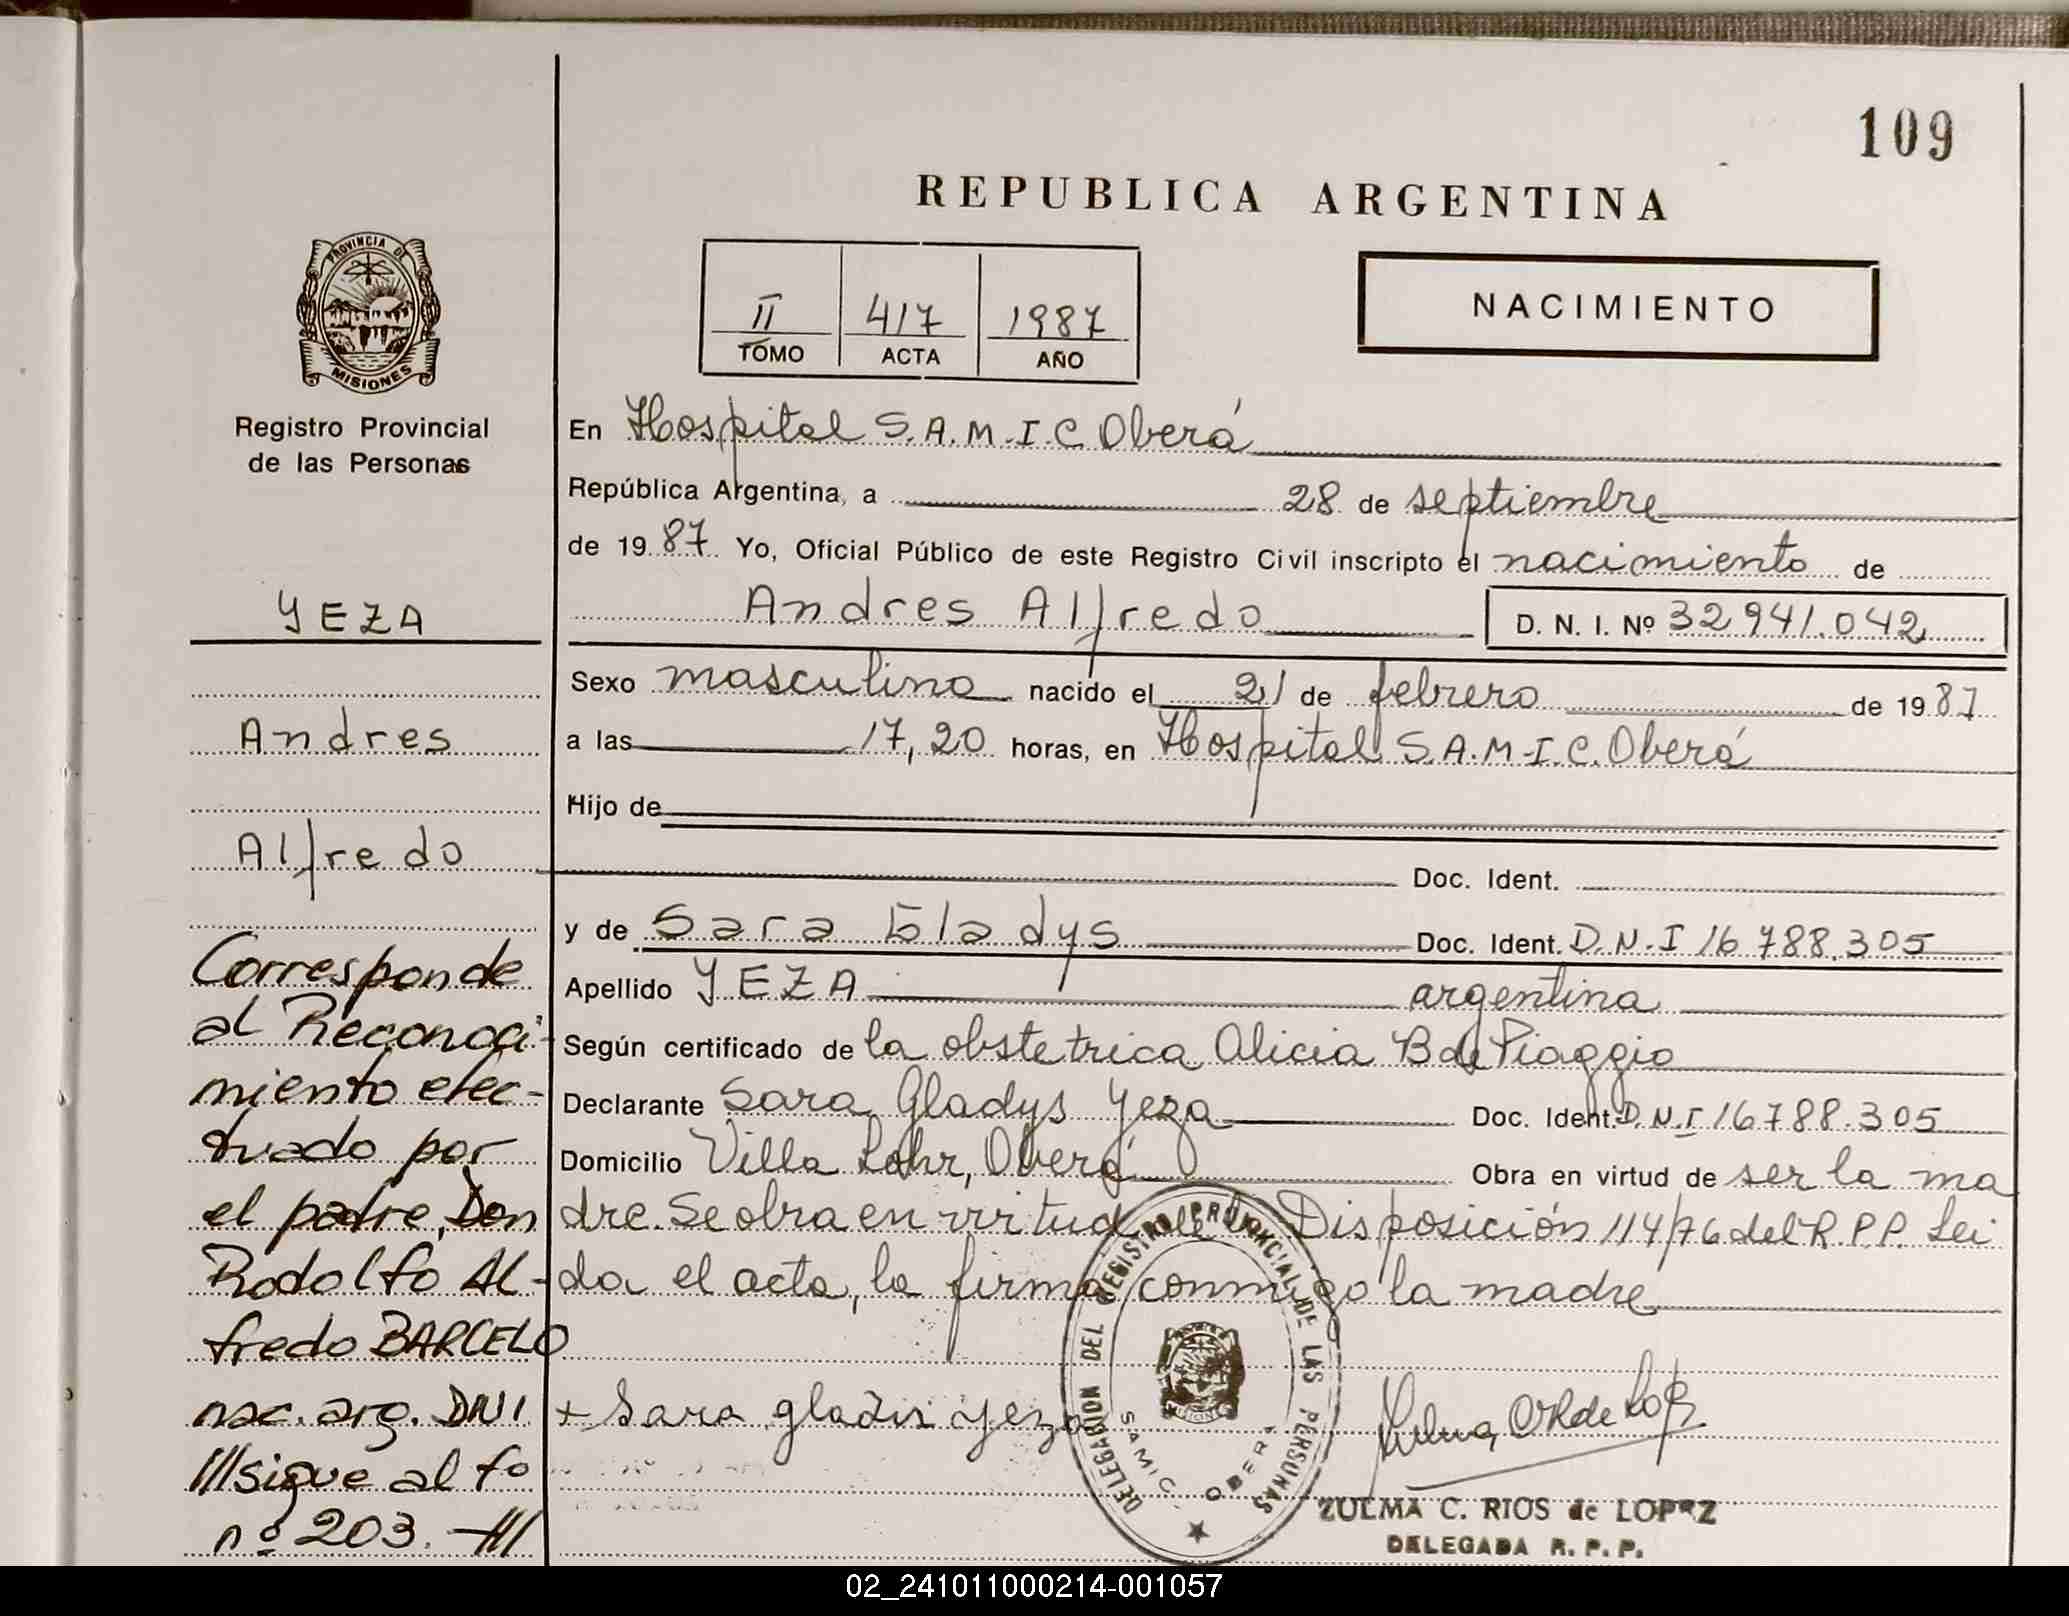 109
REPUBLICA ARGENTINA
II 417 1987
TOMO ACTA AÑO
NACIMIENTO
PROVINCIA DE
MISIONES
Registro Provincial
de las Personas
YEZA
Andres
Alfredo
Corresponde
al Reconoci-
miento efec-
tuado por
el padre, Don
Rodolfo Al-
fredo BARCELO
nac. arg. DNI
///sigue al fo
nº 203. -///
En Hospital S.A.M.I.C. Oberá
República Argentina, a 28 de septiembre
de 1987 Yo, Oficial Público de este Registro Civil inscripto el nacimiento de
Andres Alfredo D. N. I. Nº 32941.042
Sexo masculino nacido el 21 de febrero de 1987
a las 17,20 horas, en Hospital S.A.M.I.C. Oberá
Hijo de
Doc. Ident.
y de Sara Gladys Doc. Ident. D.N.I 16788.305
Apellido YEZA argentina
Según certificado de la obstetrica Alicia B de Piaggio
Declarante Sara Gladys Yeza Doc. Ident. D.N.I 16788.305
Domicilio Villa Lohr, Oberá Obra en virtud de ser la ma
dre. Se obra en virtud de Disposición 114/76 del R.P.P. Lei
da el acta, la firma conmigo la madre
+ Sara gladis yeza
DELEGACION DEL REGISTRO PROVINCIAL DE LAS PERSONAS
SAMIC - OBERA
ZULMA C. RIOS de LOPEZ
DELEGADA R. P. P.
02_241011000214-001057